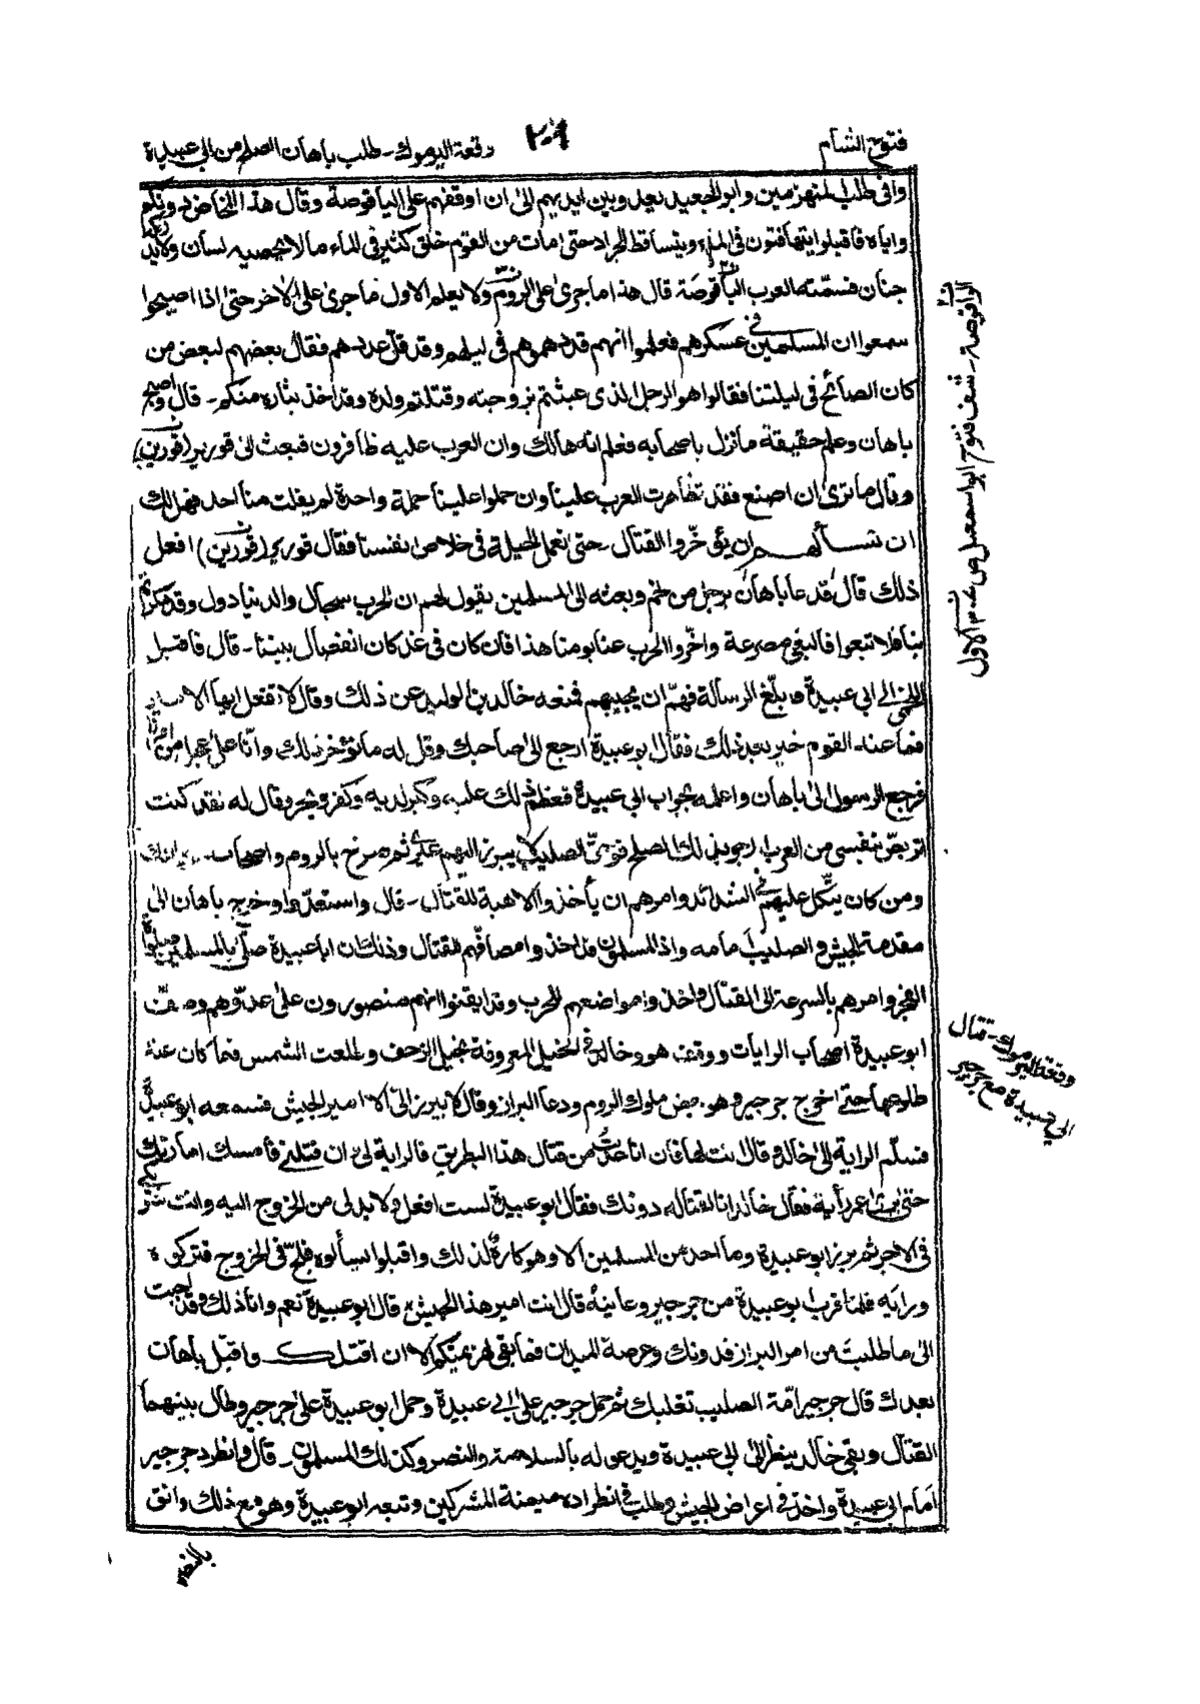 فتوح الشأم
٢٠٩
وقعة اليرموك - طلب باهان الصلح من ابي عبيدة
وافى طلب المنهزمين وابو الجعيد بعدو بين ايديهم الى ان اوقفهم على الياقوصة وقال هذا المخاض دونكم
واياه فاقبلوا يتهافتون في الماء ويتساقط الجراد حتى مات من القوم خلق كثير في الماء ما لا يحصيه لسان ولا يدركه
جنان فسمته العرب الياقوصة قال هذا ما جرى على الروم ولا يعلم الاول ما جرى على الاخر حتى اذا اصبحوا
سمعوا ان المسلمين في عسكرهم فعلموا انهم قد دهموهم في ليلهم وقد قل عددهم فقال بعضهم لبعض من
كان الصائح في ليلتنا فقالوا هو الرجل الذي عبثتم بزوجته وقتلتم ولده وقد اخذ بثاره منكم - قال واصبح
باهان وعلم حقيقة ما نزل باصحابه فعلم انه هالك وان العرب عليه ظافرون فبعث الى قورير (قورين)
وقال ما ترى ان اصنع فقد تظاهرت العرب علينا وان حملوا علينا حملة واحدة لم يفلت منا احد فهل لك
ان نسألهم ان يؤخروا القتال حتى نعمل الحيلة في خلاص انفسنا فقال قورير (قورين) افعل
ذلك قال فدعا باهان برجل من لخم وبعثه الى المسلمين يقول لهم ان الحرب سجال والدنيا دول وقد مكرتم
بنا فلا تبغوا فالبغي مصرعة واخروا الحرب عنا يومنا هذا فان كان في غد كان انفصال بيننا - قال فاقبل
اللخمي الى ابي عبيدة وبلغ الرسالة فهم ان يجيبهم فمنعه خالد بن الوليد عن ذلك وقال لا تفعل ايها الامير
فما عند القوم خير بعد ذلك فقال ابو عبيدة ارجع الى صاحبك وقل له ما نؤخر ذلك وانا على عجل من امرنا
فرجع الرسول الى باهان واعلمه بجواب ابي عبيدة فعظم ذلك عليه وكبر لديه وكفر وقال له لقد كنت
اتربص بنفسي من العرب ارجو بذلك الصلح فوحق الصليب لا يبرز اليهم غيري ثم صرخ بالروم واصحاب
ومن كان يتكل عليهم في الشدائد وامرهم ان يأخذوا الاهبة للقتال - قال واستعدوا وخرج باهان الى
مقدمة الجيش والصليب امامه واذا المسلمون قد اخذوا مصافهم للقتال وذلك ان ابا عبيدة صلى بالمسلمين صلوة
الفجر وامرهم بالسرعة الى القتال فاخذوا مواضعهم للحرب وقد ايقنوا انهم منصورون على عدوهم وصفّ
ابو عبيدة اصحاب الرايات ووقف هو وخالد في الخيل المعروفة بخيل الزحف وطلعت الشمس فما كان عند
طلوعها حتى اخرج جرجير وهو بعض ملوك الروم ودعا البراز وقال لا يبرز الي الا امير الجيش فسمعه ابو عبيدة
فسلم الراية الى خالد وقال انت لها فان انا عدت من قتال هذا البطريق فالراية لي وان قتلني فأمسك امارتك
حتى يرى عمر رأيه فقال خالد انا لقتاله دونك فقال ابو عبيدة لست افعل ولا بد لي من الخروج اليه وانت شريكي
في الاجر ثم برز ابو عبيدة وما احد من المسلمين الا وهو كاره لذلك واقبلوا يسألوه فلجّ في الخروج فتركوه
ورايه فلما قرب ابو عبيدة من جرجير وعاينه قال انت امير هذا الجيش قال ابو عبيدة نعم وانا ذلك وقد اجبت
الى ما طلبت من امر البراز فدونك وعرصة الميدان فما بقي لهزيمتكم الا ان اقتلك واقتل باهان
بعدك قال جرجير امة الصليب تغلبك ثم حمل جرجير على ابي عبيدة وحمل ابو عبيدة على جرجير وطال بينهما
القتال وبقي خالد ينظر الى ابي عبيدة ويدعو له بالسلامة والنصر وكذلك المسلمون - قال وانطرد جرجير
امام ابي عبيدة واخذ في اعراض الجيش وطلب في انطراده ميمنة المشركين وتبعه ابو عبيدة وهو مع ذلك واثق
بالنصر
الواقوصة - نسف فتوح ابو اسمعيل ص الاول
وقعة اليرموك - قتال
ابي عبيدة مع جرجير